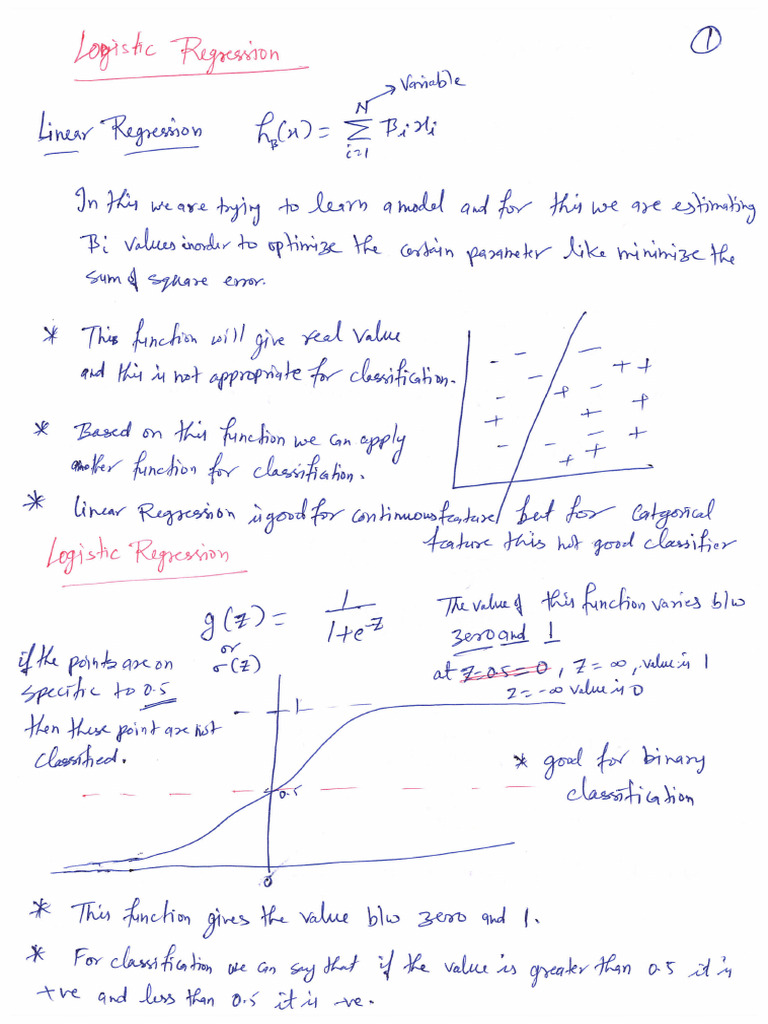 Logistic Regression
①
Variable
Linear Regression h_B(x) = N Σ i=1 B_i x_i
In this we are trying to learn a model and for this we are estimating
Bi values inorder to optimize the certain parameter like minimize the
sum of square error.
* This function will give real value
and this is not appropriate for classification.
* Based on this function we can apply
another function for classification.
* Linear Regression is good for continuous feature but for Catgorical
feature this not good classifier
Logistic Regression
g(z) = 1/(1+e^-z)
or
σ(z)
The value of this function varies b/w
zero and 1
at z=0.5=0, z=∞, value is 1
z=-∞ value is 0
if the points are on
specific to 0.5
then these point are not
classified.
1
0.5
0
* good for binary
classification
* This function gives the value b/w zero and 1.
* For classification we can say that if the value is greater than 0.5 it is
+ve and less than 0.5 it is -ve.